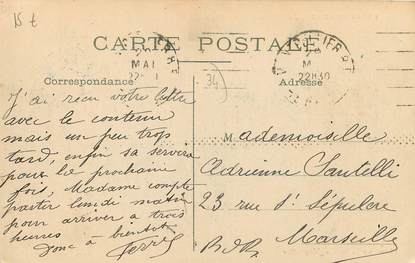 15 €
CARTE POSTALE
MAI
22
MONTPELLIER
22H30
34
Correspondance
Adresse
J'ai reçu votre lettre
avec le contenu
mais un peu trop
tard, enfin sa servira
pour le prochaine
fois, Madame compte
partir lundi matin
pour arriver a trois
heures
Donc à bientôt
Mademoiselle
Adrienne Santelli
23 rue St Sépulcre
Marseille